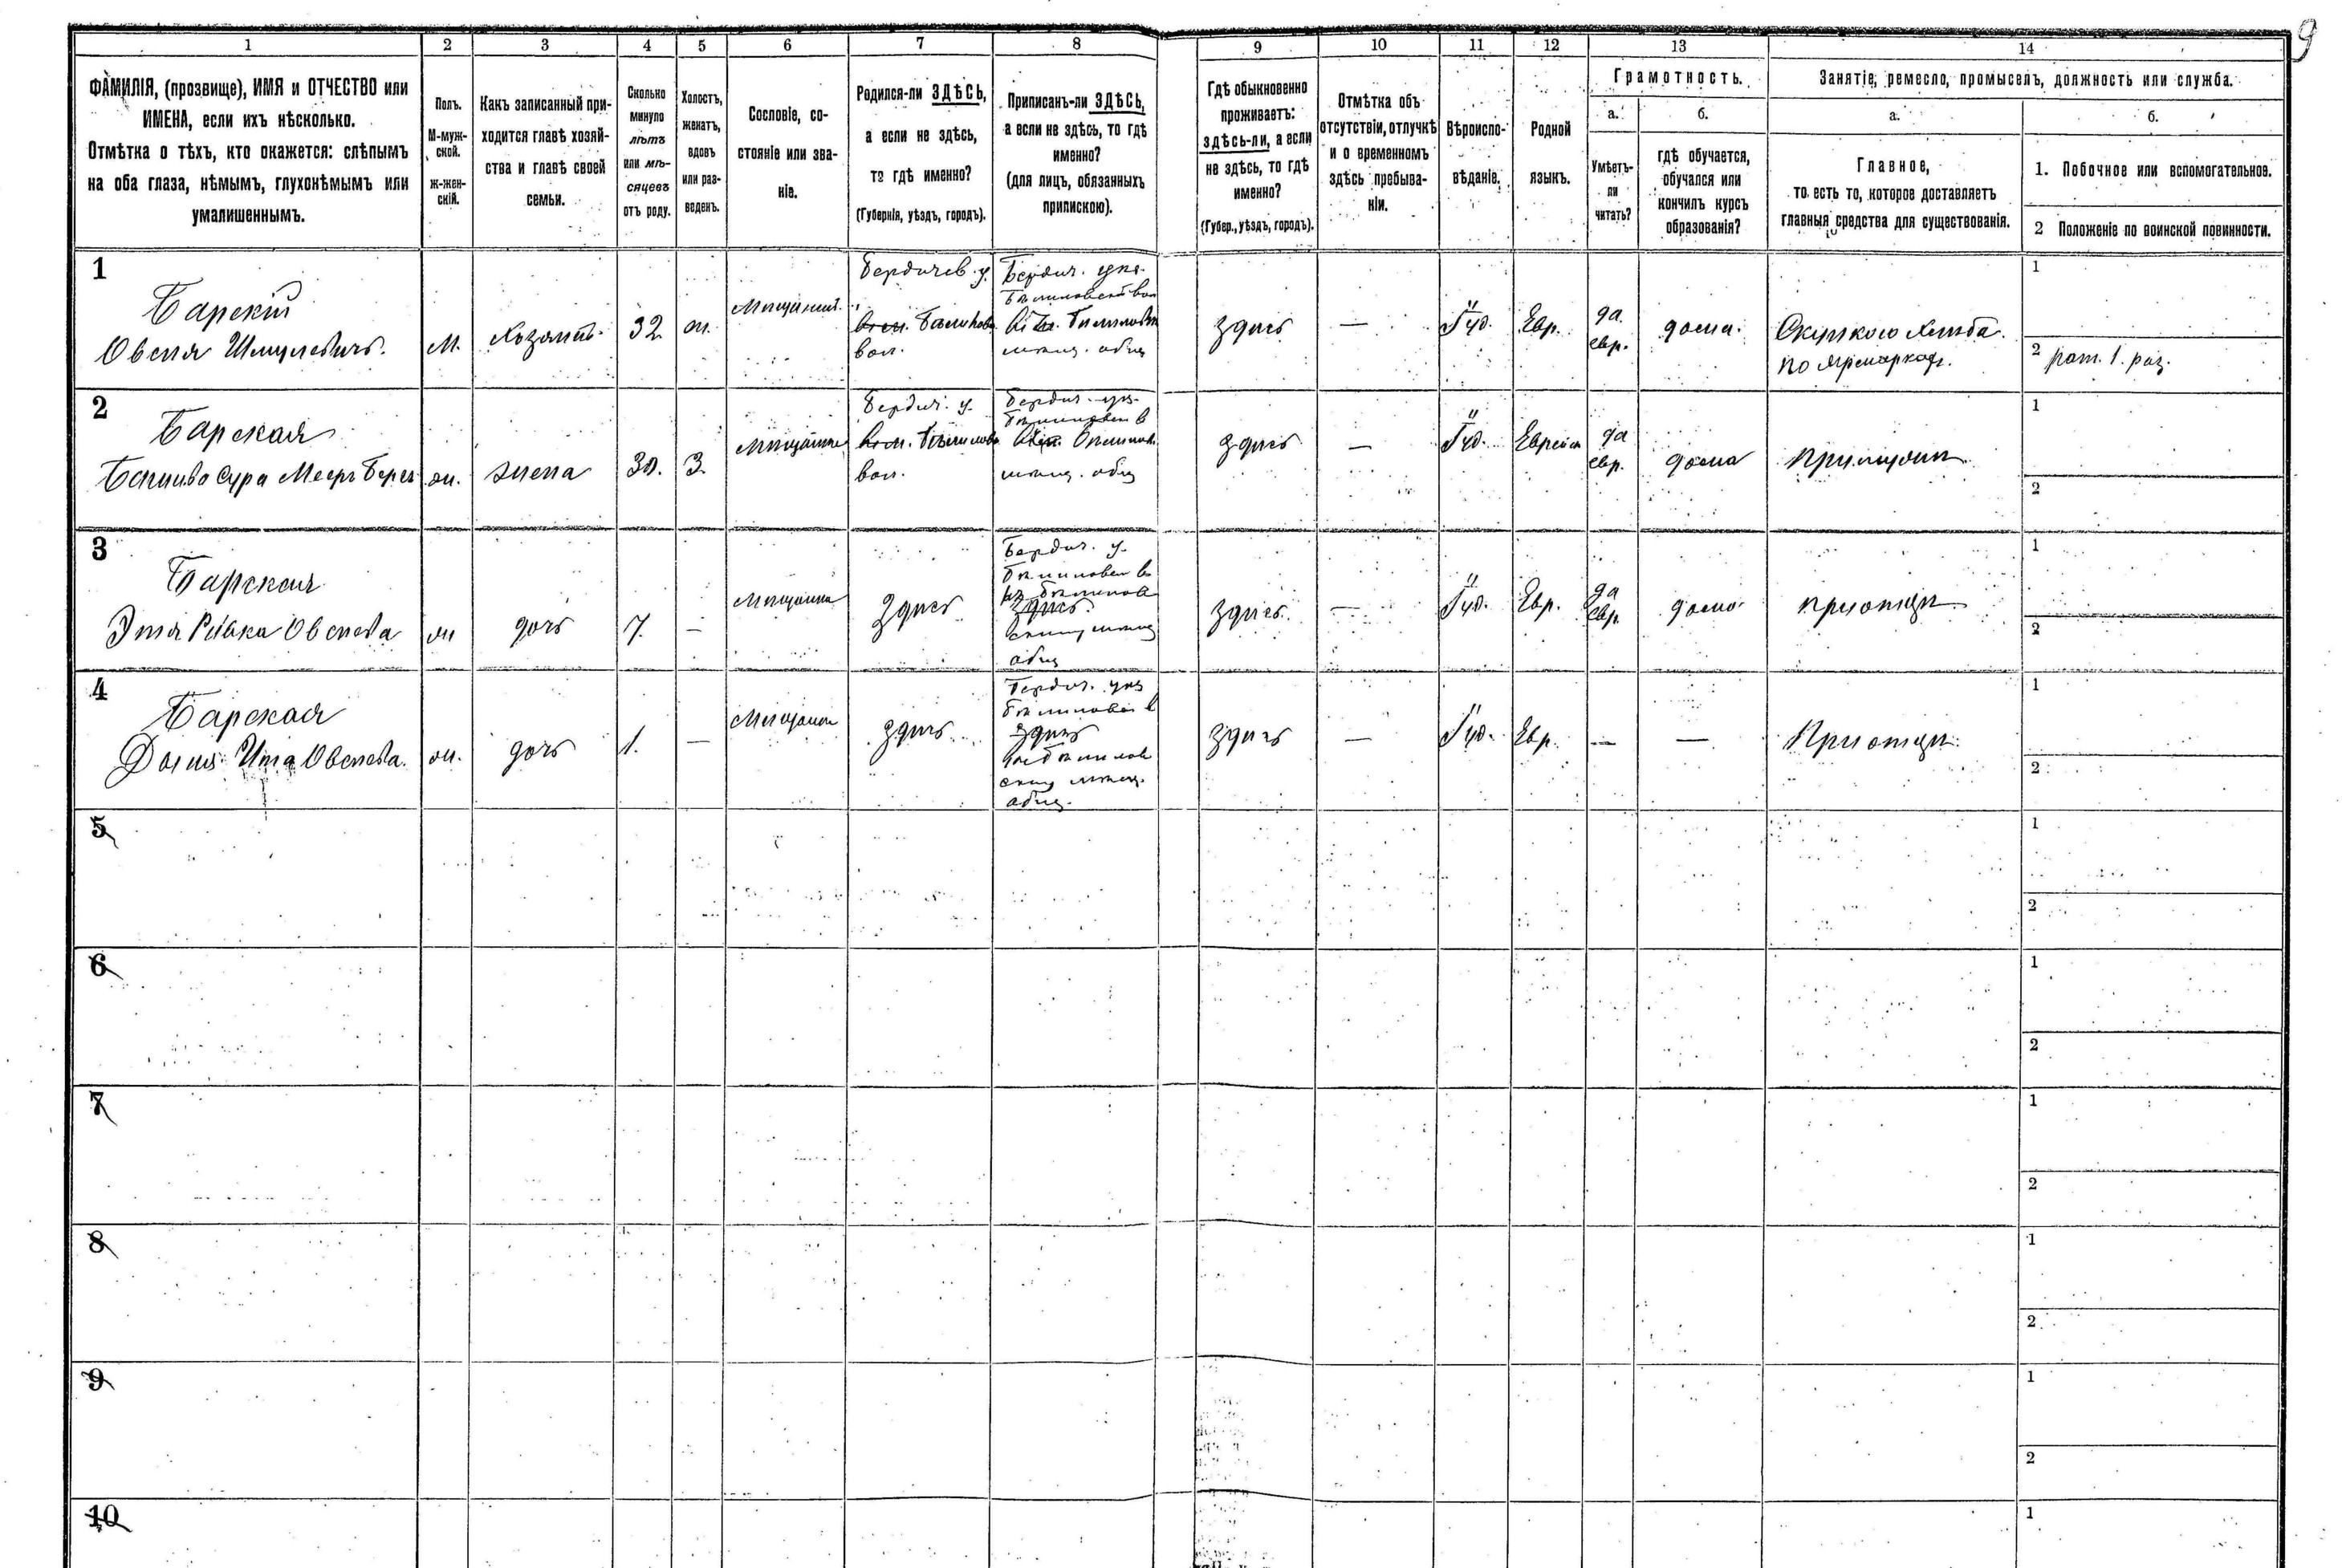 9
1 2 3 4 5 6 7 8 9 10 11 12 13 14
ФАМИЛІЯ, (прозвище), ИМЯ и ОТЧЕСТВО или
ИМЕНА, если ихъ нѣсколько.
Отмѣтка о тѣхъ, кто окажется: слѣпымъ
на оба глаза, нѣмымъ, глухонѣмымъ или
умалишеннымъ.
Полъ.
М-муж-
ской.
ж-жен-
скій.
Какъ записанный при-
ходится главѣ хозяй-
ства и главѣ своей
семьи.
Сколько
минуло
лѣтъ
или мѣ-
сяцевъ
отъ роду.
Холостъ,
женатъ,
вдовъ
или раз-
веденъ.
Сословіе, со-
стояніе или зва-
ніе.
Родился-ли ЗДѢСЬ,
а если не здѣсь,
то гдѣ именно?
(Губернія, уѣздъ, городъ).
Приписанъ-ли ЗДѢСЬ,
а если не здѣсь, то гдѣ
именно?
(для лицъ, обязанныхъ
припискою).
Гдѣ обыкновенно
проживаетъ:
здѣсь-ли, а если
не здѣсь, то гдѣ
именно?
(Губер., уѣздъ, городъ).
Отмѣтка объ
отсутствіи, отлучкѣ
и о временномъ
здѣсь пребыва-
ніи.
Вѣроиспо-
вѣданіе.
Родной
языкъ.
Грамотность.
а.
Умѣетъ-
ли
читать?
б.
гдѣ обучается,
обучался или
кончилъ курсъ
образованія?
Занятіе, ремесло, промыселъ, должность или служба.
а.
Главное,
то есть то, которое доставляетъ
главныя средства для существованія.
б.
1. Побочное или вспомогательное.
2 Положеніе по воинской повинности.
1
Барскій
Овсей Шмулевичъ.
М.
Хозяинъ
32
ж.
Мѣщанинъ
Бердичев. у.
вол.
Бердич. уѣз.
мѣщ. общ
здѣсь
—
Іуд.
Евр.
да
евр.
дома.
Скупкою хлѣба
по ярмаркахъ.
1
2 рат. 1. раз.
2
Барская
Сура Меер Берк
ж.
жена
30.
З.
Мѣщанка
Бердич. у.
вол.
Бердич. уѣз.
мѣщ. общ
здѣсь
—
Іуд.
Еврейск
да
евр.
дома
При мужѣ
1
2
3
Барская
Этя Ривка Овсеева
ж
дочь
7.
—
Мѣщанка
Здѣсь
Бердич. у.
здѣсь
общ
здѣсь.
—
Іуд.
Евр.
да
евр.
дома
при отцѣ
1
2
4
Барская
Ита Овсеева.
ж.
дочь
1.
—
Мѣщанка
здѣсь.
Бердич. уѣз
здѣсь
мѣщ.
общ.
здѣсь
—
Іуд.
Евр.
—
—
При отцѣ.
1
2
5
1
2
6
1
2
7
1
2
8
1
2
9
1
2
10
1